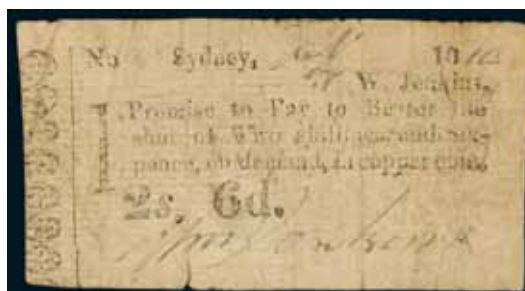 No Sydney, 181
W. Jenkins,
I Promise to Pay to Bearer the
sum of Two shillings and six-
pence, on demand, in copper coin.
2s, 6d.
Wm Jenkins